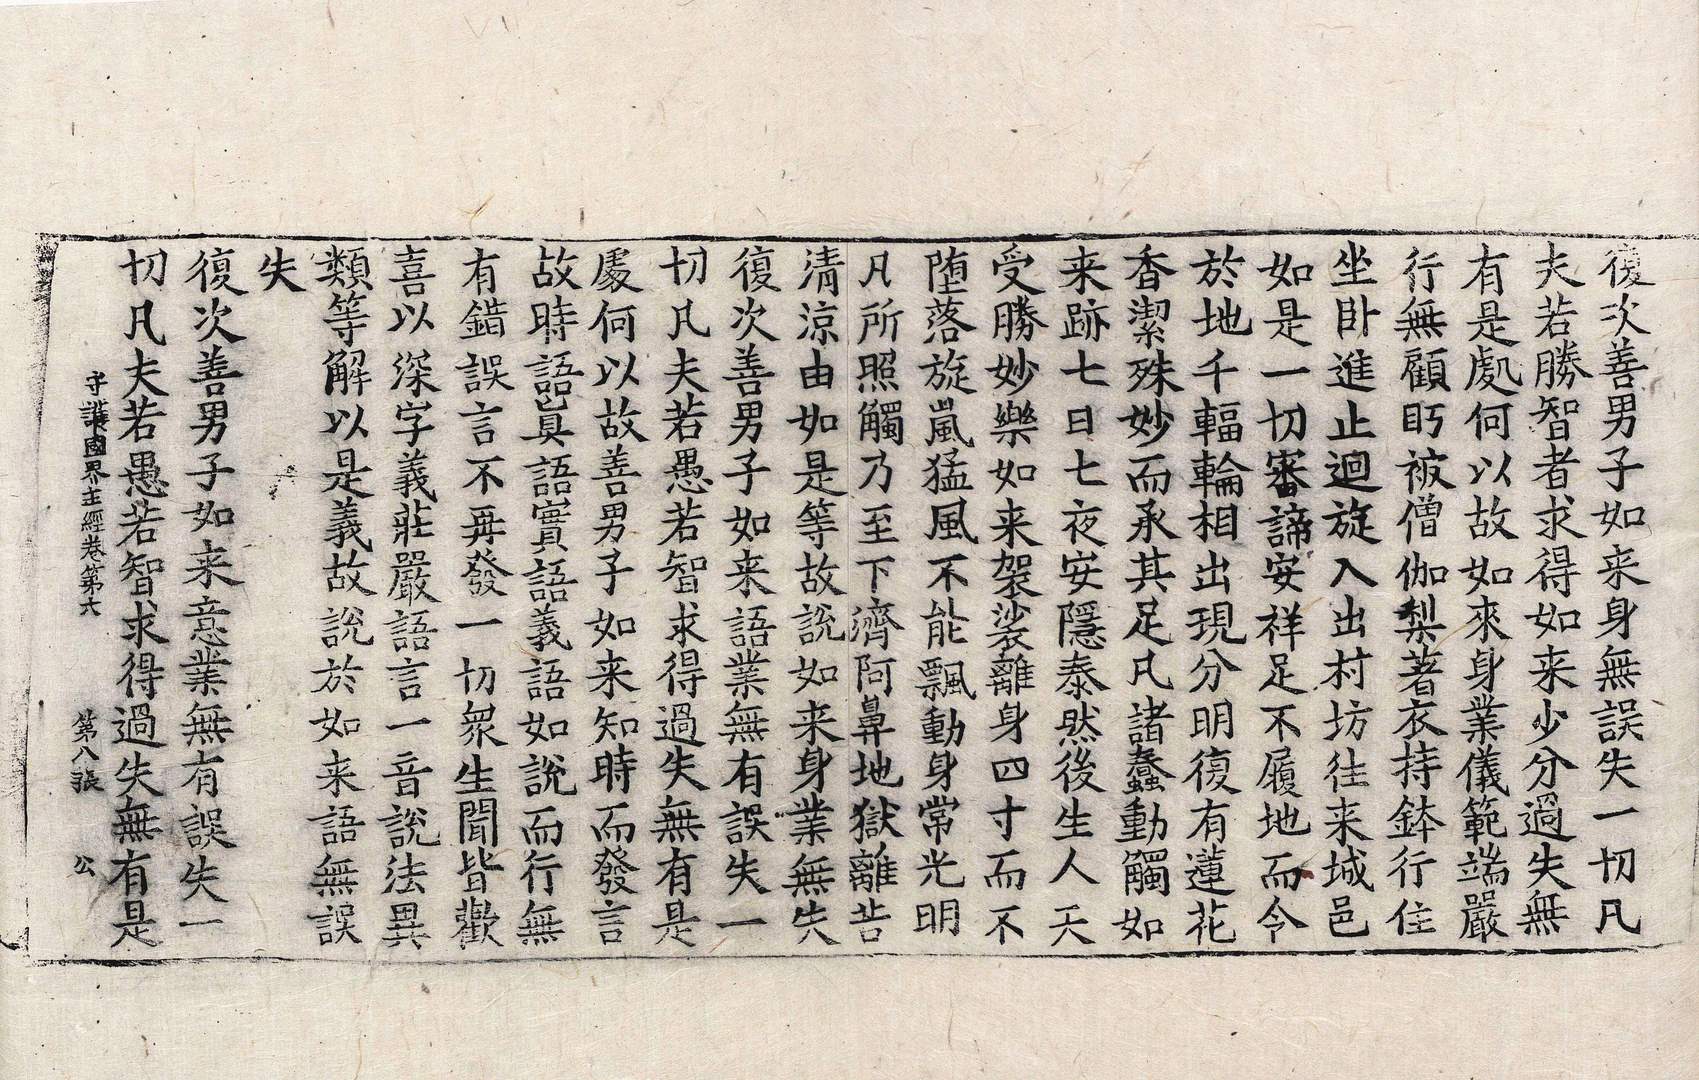 復次善男子如来身無誤失一切凡
夫若勝智者求得如来少分過失無
有是處何以故如來身業儀範端嚴
行無顧眄被僧伽梨著衣持鉢行住
坐卧進止迴旋入出村坊往来城邑
如是一切審諦安祥足不履地而令
於地千輻輪相出現分明復有蓮花
香潔殊妙而承其足凡諸蠢動觸如
来跡七日七夜安隱泰然後生人天
受勝妙樂如来袈裟離身四寸而不
墮落旋嵐猛風不能飄動身常光明
凡所照觸乃至下濟阿鼻地獄離苦
清涼由如是等故說如来身業無失
復次善男子如来語業無有誤失一
切凡夫若愚若智求得過失無有是
處何以故善男子如来知時而發言
故時語眞語實語義語如說而行無
有錯誤言不再發一切衆生聞皆歡
喜以深字義莊嚴語言一音說法異
類等解以是義故說於如来語無誤
失
復次善男子如来意業無有誤失一
切凡夫若愚若智求得過失無有是
守護國界主經卷第六 第八張 公